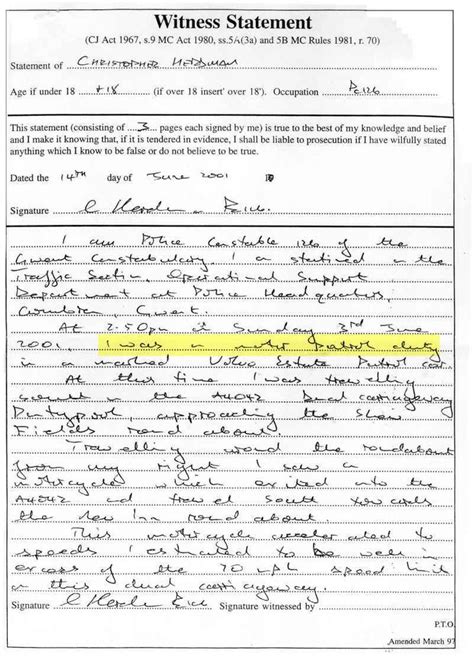 Witness Statement
(CJ Act 1967, s.9 MC Act 1980, ss.5A(3a) and 5B MC Rules 1981, r. 70)
Statement of CHRISTOPHER HERDMAN
Age if under 18 +18 (if over 18 insert' over 18'). Occupation Pc126
This statement (consisting of 3 pages each signed by me) is true to the best of my knowledge and belief
and I make it knowing that, if it is tendered in evidence, I shall be liable to prosecution if I have wilfully stated
anything which I know to be false or do not believe to be true.
Dated the 14th day of June 2001
Signature
I am Police Constable 126 of the
Gwent Constabulary. I am stationed in the
Traffic Section, Operational Support
Department at Police Headquarters,
Cwmbran, Gwent.
At 2.50pm on Sunday 3rd June
2001 I was on motor patrol duty
in a marked Volvo Estate Patrol car.
At this time I was travelling
on the A4042 Dual carriageway
Pontypool, approaching the
Fields round about.
Travelling round the roundabout
from my right I saw a
motorcycle which exited onto the
A4042 and travel South towards
the New Inn round about.
This motorcycle accelerated to
speeds I estimated to be well in
excess of the 70 mph speed limit
on this dual carriageway.
Signature Signature witnessed by
P.T.O.
Amended March 97